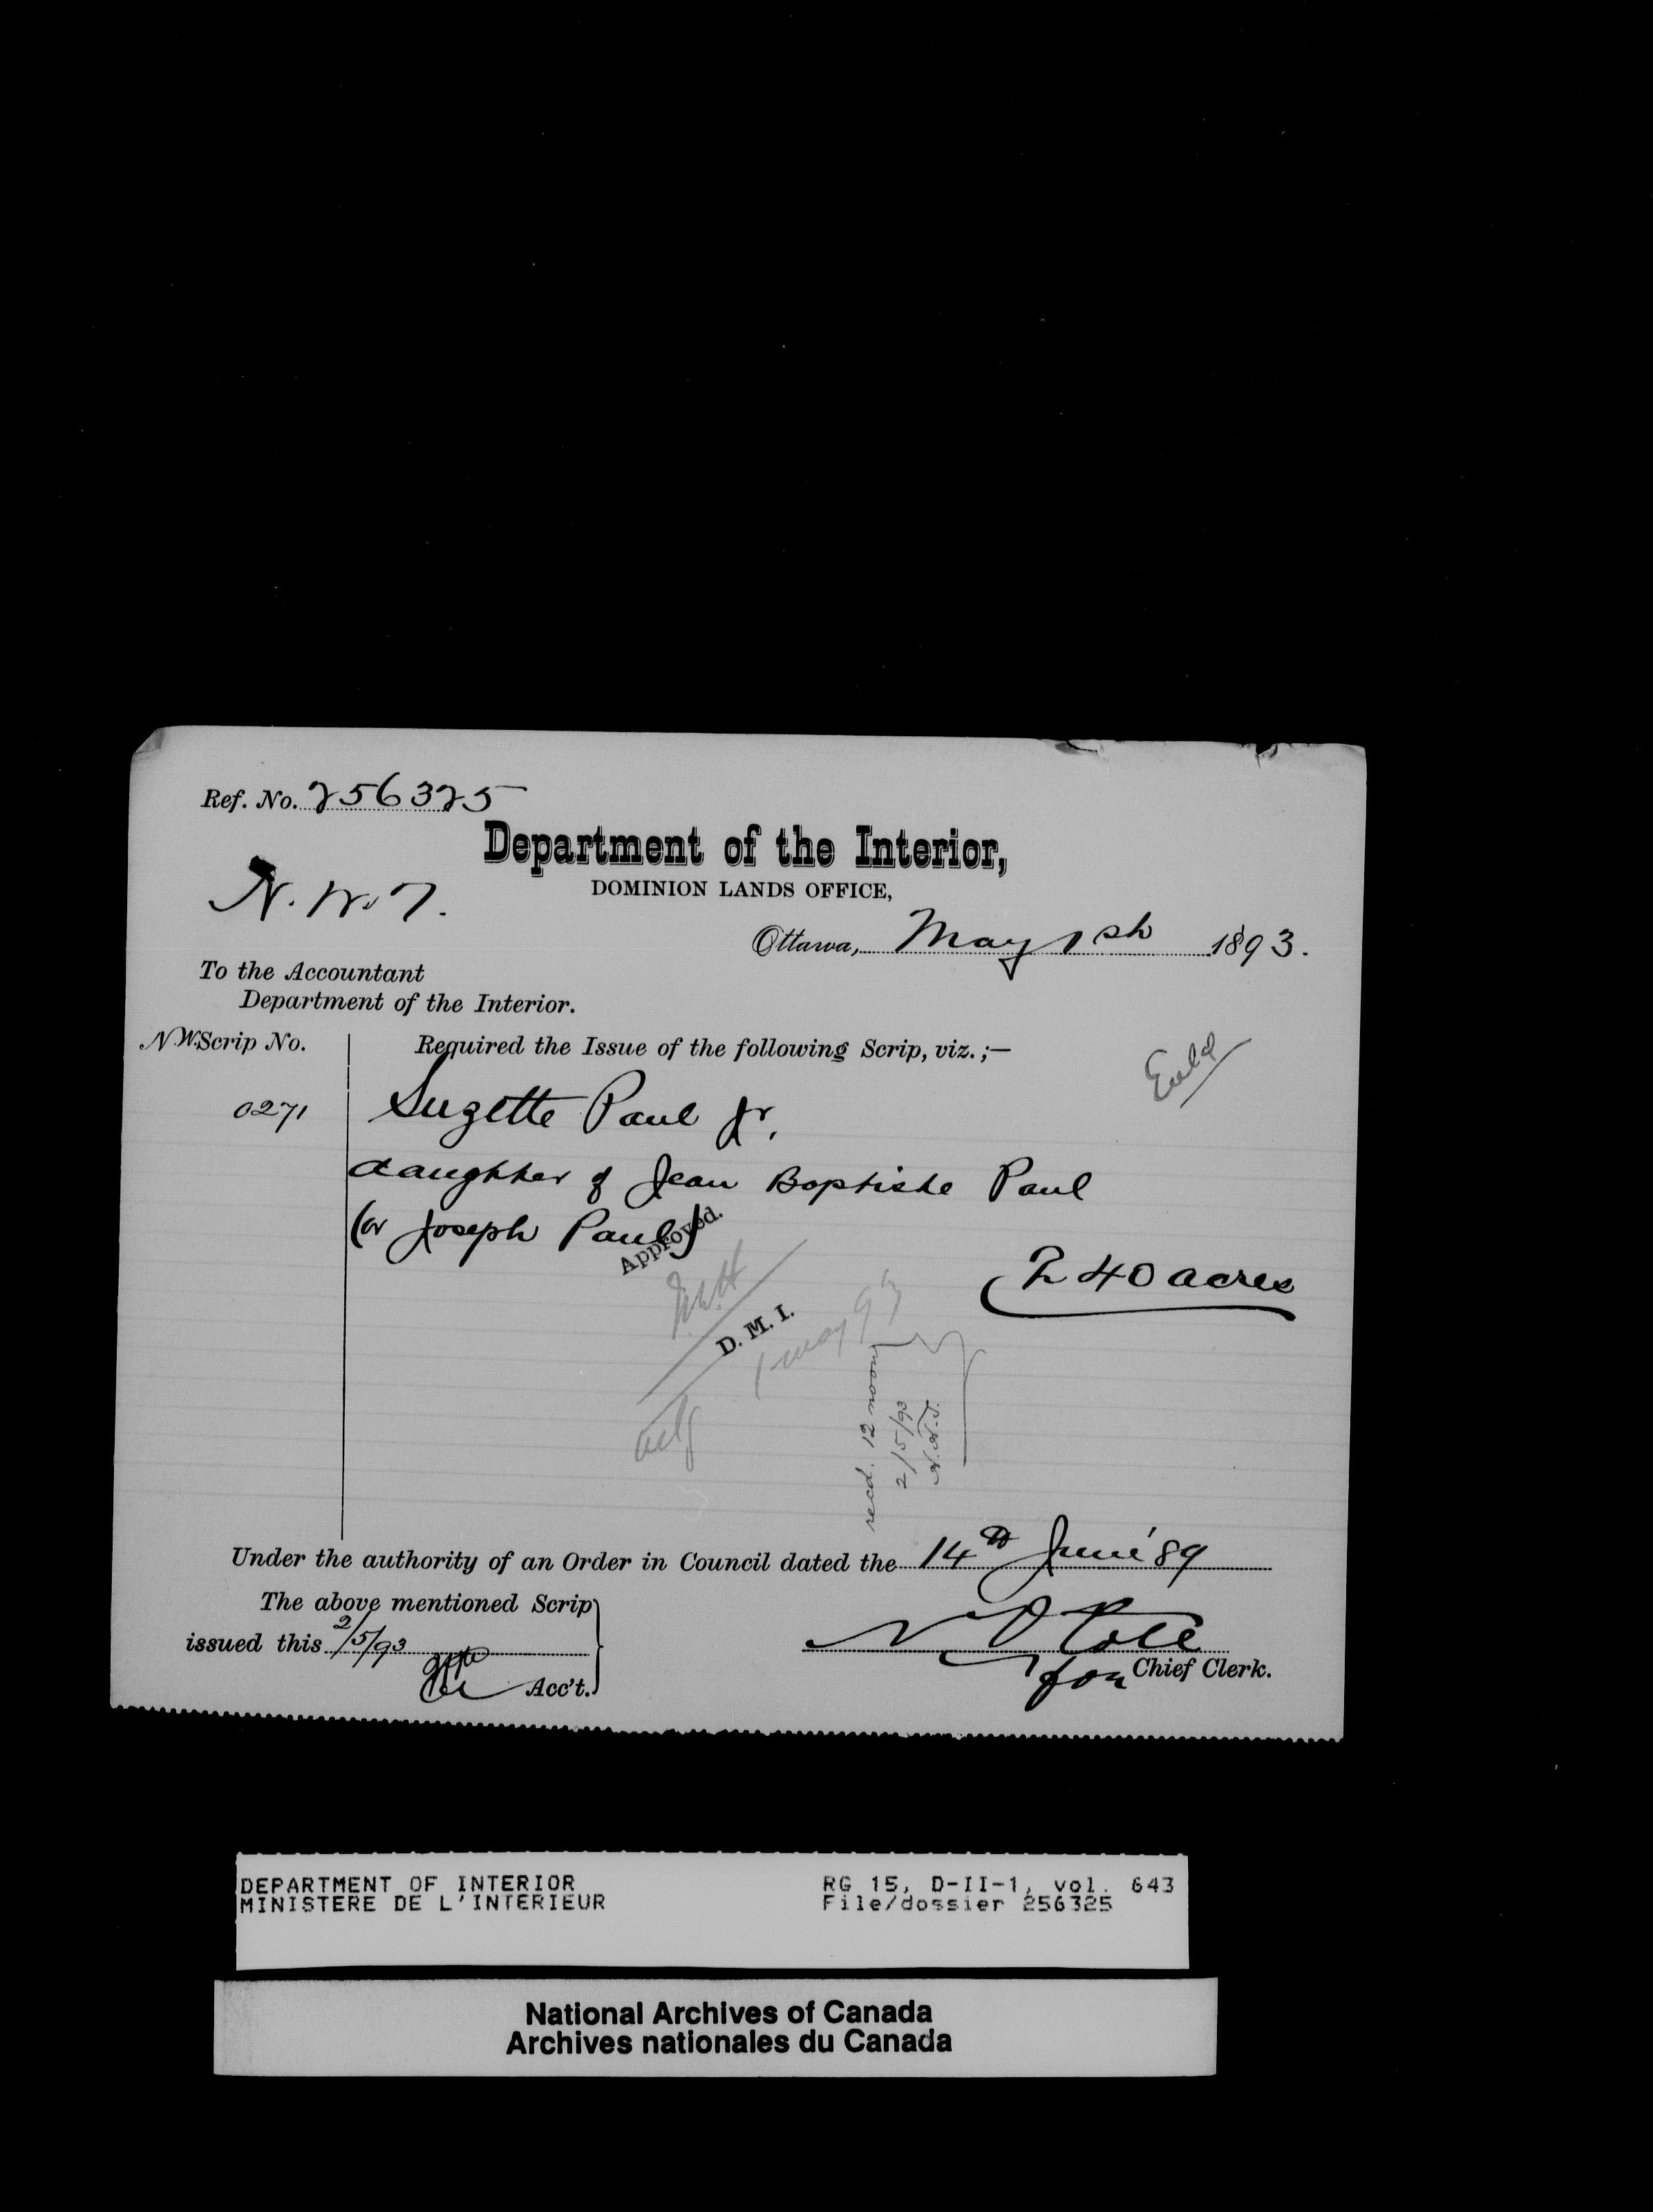 Ref. No. 256325
Department of the Interior,
DOMINION LANDS OFFICE,
N.W.T.
Ottawa, May 1st 1893.
To the Accountant
Department of the Interior.
N.W. Scrip No.
Required the Issue of the following Scrip, viz. ;—
0271
Suzette Paul Jr.
daughter of Jean Baptiste Paul
(or Joseph Paul)
240 acres
Approved.
D. M. I.
1 May 93
recd. 12 noon
2/5/93
Under the authority of an Order in Council dated the 14th June '89
The above mentioned Scrip
issued this 2/5/93
Acc't.
for Chief Clerk.
DEPARTMENT OF INTERIOR
MINISTERE DE L'INTERIEUR
RG 15, D-II-1, vol. 643
File/dossier 256325
National Archives of Canada
Archives nationales du Canada